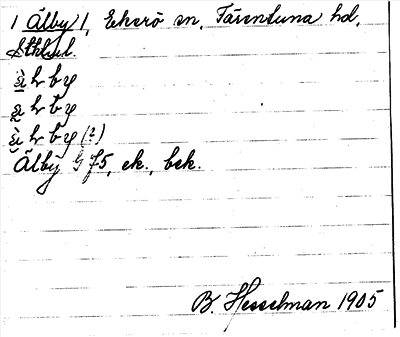 1 Älby 1, Ekerö sn, Färentuna hd,
Sthlm l.
h b y
h b y
h b y (?)
Älby G 75, ek., bek.
B. Hesselman 1905